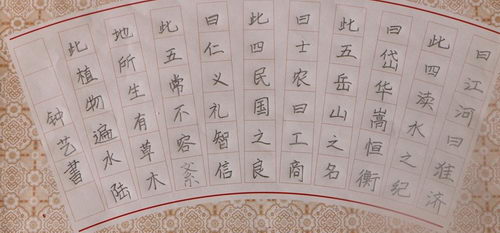 曰江河曰淮济
此四渎水之纪
曰岱华嵩恒衡
此五岳山之名
曰士农曰工商
此四民国之良
曰仁义礼智信
此五常不容紊
地所生有草木
此植物遍水陆
钟艺書